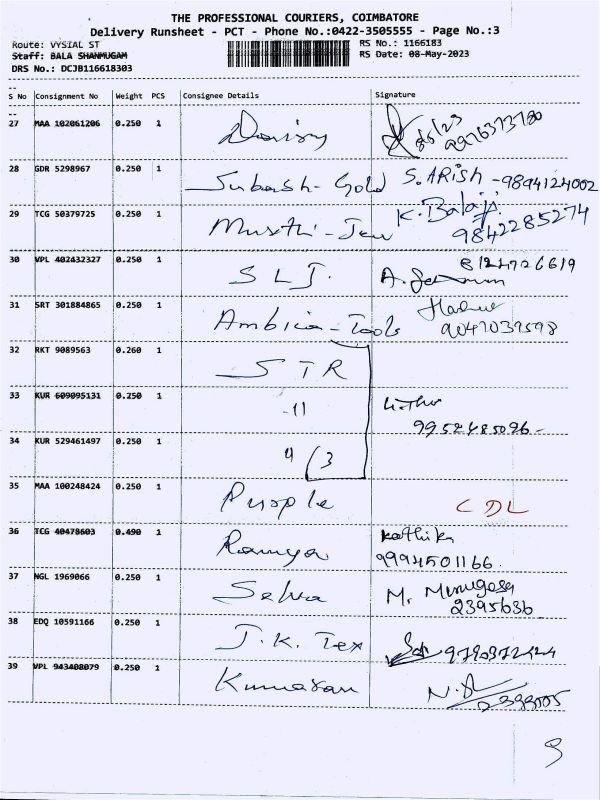 THE PROFESSIONAL COURIERS, COIMBATORE
Delivery Runsheet - PCT - Phone No.:0422-3505555 - Page No.:3
Route: VYSIAL ST
RS No.: 1166183
Staff: BALA SHANMUGAM
RS Date: 08-May-2023
DRS No.: DCJB116618303
--
S No Consignment No Weight PCS Consignee Details Signature
--
27 MAA 102061206 0.250 1
28 GDR 5298967 0.250 1 Subash-Gold S. ARISH -9894124002
29 TCG 50379725 0.250 1 K. Balaji
9842285274
30 VPL 402432327 0.250 1 SLJ.
31 SRT 301884865 0.250 1 Ambica-Tools
32 RKT 9089563 0.260 1 STR
33 KUR 609095131 0.250 1 -11
9952485096-
34 KUR 529461497 0.250 1 4 (3
35 MAA 100248424 0.250 1 Purple CDL
36 TCG 40478603 0.490 1 Ramya kathika
9994501166.
37 NGL 1969066 0.250 1 Selva M. Murugesa
2395636
38 EDQ 10591166 0.250 1 J.K. Tex
39 VPL 943408079 0.250 1 Kumaran
9